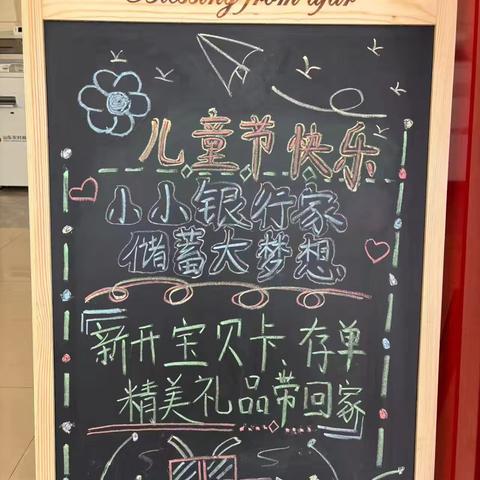 Blessing from afar
儿童节快乐
小小银行家
储蓄大梦想
「新开宝贝卡、存单
精美礼品带回家」